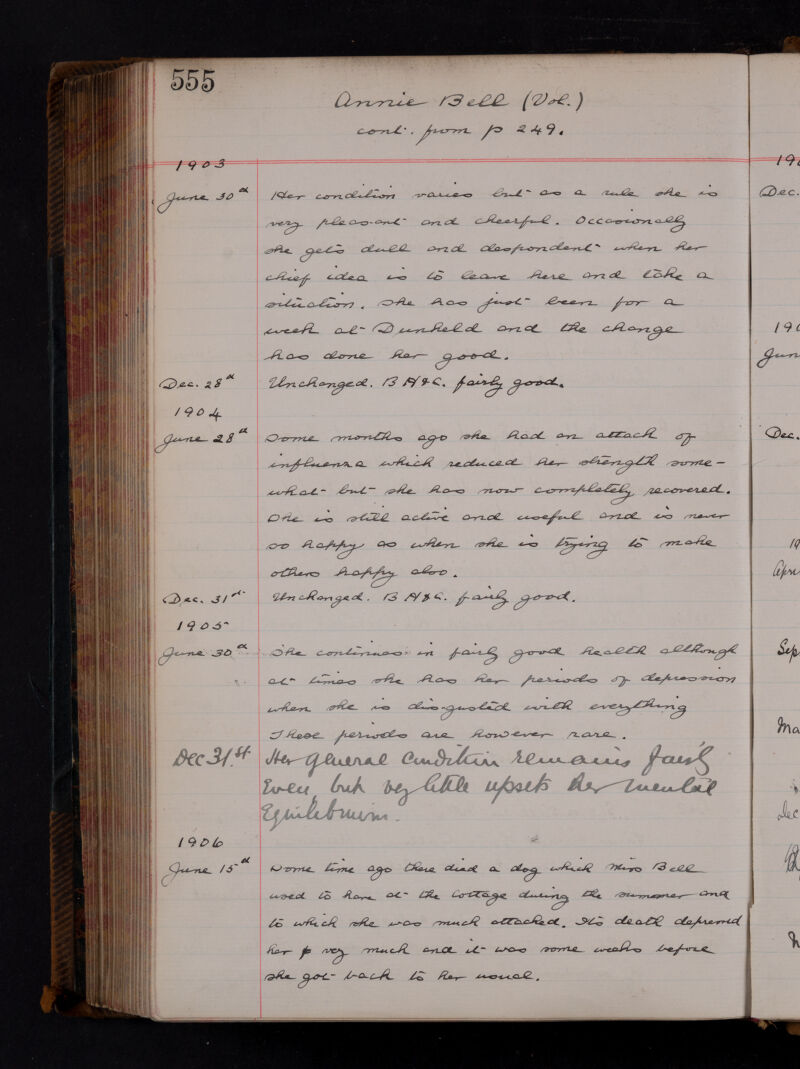 555
Annie Bell (Vol.)
cont. from p 249.
1903
June 30th Her condition varies but as a rule she is
very pleasant and cheerful. Occasionally
she gets dull and despondent when her
chief idea is to leave here and take a
situation. She has just been for a
week at Dunkeld and the change
has done her good.
Dec. 28th Unchanged. B H & C. fairly good.
1904
June 28th Some months ago she had an attack of
influenza which reduced her strength some-
what but she has now completely recovered.
She is still active and useful and is never
so happy as when she is trying to make
others happy also.
Dec. 31st Unchanged. B H & C. fairly good.
1905
June 30th She continues in fairly good health although
at times she has her periods of depression
when she is disgusted with everything
These periods are however rare.
Dec 31st Her general condition remains fairly
even, but very little upsets her mental
Equilibrium.
1906
June 15th Some time ago there died a dog which Miss Bell
used to have at the Cottage during the summer and
to which she was much attached. Its death depressed
her very much and it was some weeks before
she got back to her usual.
Dec.
Dec.
Sep